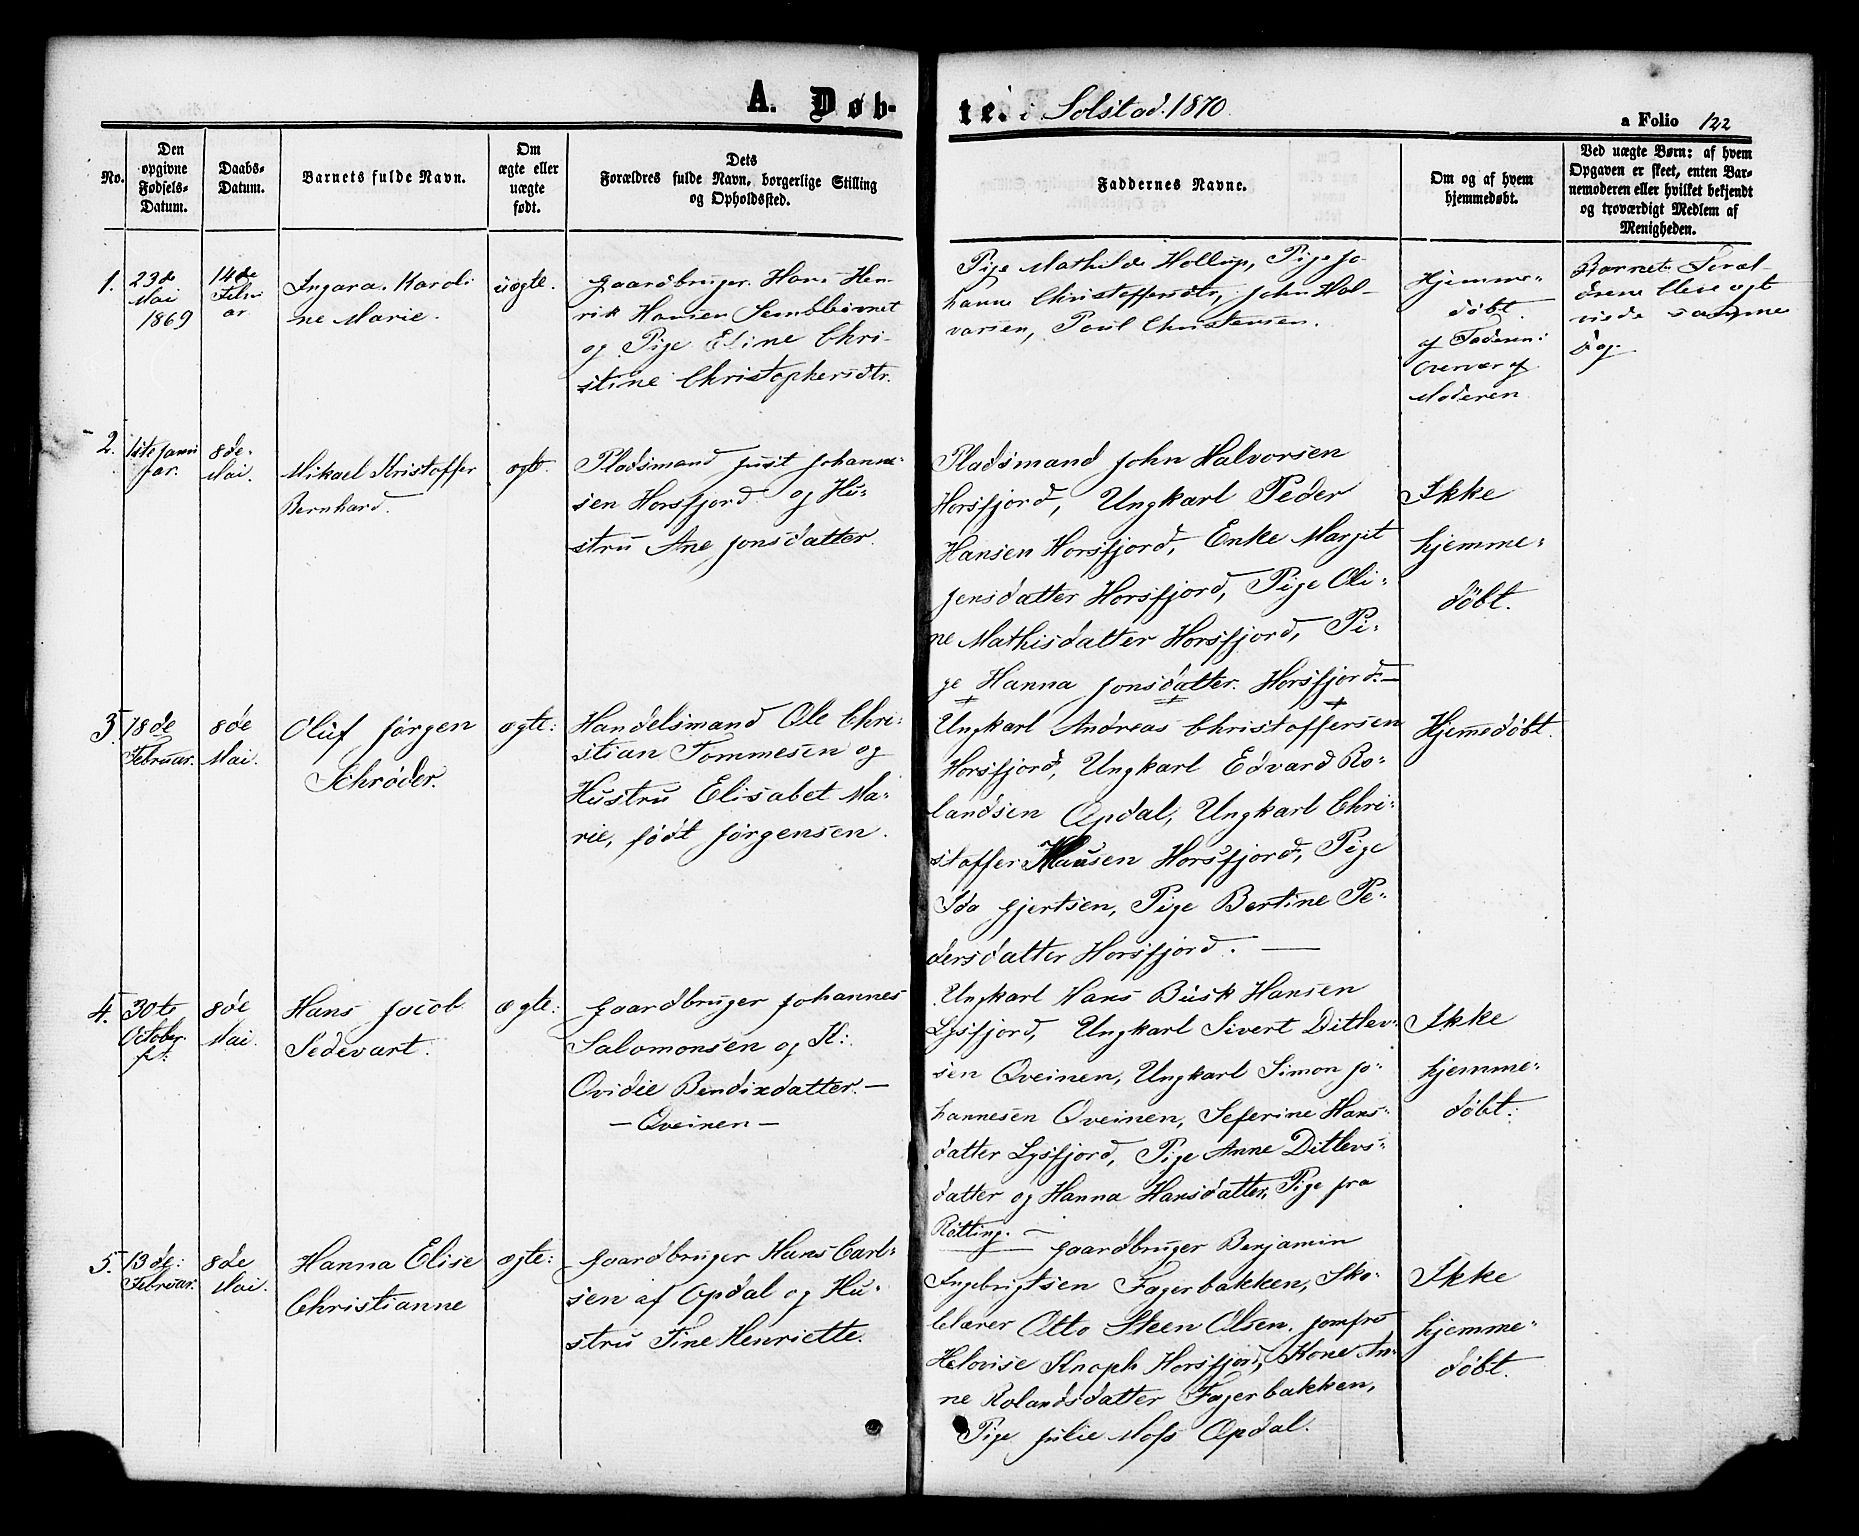 A. Døb-
te. i Solstad. 1870
a Folio 122
No.
Den
opgivne
Fødsels-
Datum.
Daabs-
Datum.
Barnets fulde Navn.
Om
ægte eller
uægte
født.
Dets
Forældres fulde Navn, borgerlige Stilling
og Opholdssted.
Faddernes Navne.
Om og af hvem
hjemmedøbt.
Ved uægte Børn: af hvem
Opgaven er skeet, enten Bar-
nemoderen eller hvilket bekjendt
og troværdigt Medlem af
Menigheden.
1.
23de
Mai
1869
14de
Febru
ar
Ingara. Karoli
ne Marie.
uægte.
Gaardbruger. Hans Hen-
rik Hansen
og Pige Eline Chri-
stine Christophersdtr.
Pige Mathilde Hollup, Pige Jo
hanne Christoffersdtr, John Hal-
varsen, Paul Christensen.
Hjemme-
døbt.
af Faderen i
Overvær af
Moderen
Barnets Foræl-
drene bleve egt
viede samme
Dag.
2.
1ste Janu
ar.
8de
Mai.
Mikael Kristoffer
Bernhard.
ægte.
Pladsmand Just Johanne-
sen Horsfjord og Hu-
stru Ane Jonsdatter.
Pladsmand John Halvorsen
Horsfjord, Ungkarl Peder
Hansen Horsfjord, Enke Margit
Jensdatter Horsfjord, Pige Oli-
ne Mathisdatter Horsfjord, Pi-
ge Hanna Jonsdatter. Horsfjord.-
Ikke
hjemme-
døbt.
3.
18de
Februar.
8de
Mai.
Oluf Jørgen
Schrøder.
ægte:
Handelsmand Ole Chri-
stian Tommesen og
Hustru Elisabet Ma-
rie, født Jørgensen.
Ungkarl Andreas Christoffersen
Horsfjord, Ungkarl Edvard Ro-
landsen Opdal, Ungkarl Chri-
stoffer Hansen Horsfjord, Pige
Ida Gjertsen, Pige Bertine Pe-
dersdatter Horsfjord. -
Hjemmedøbt.
4.
30te
October
f.
8de
Mai.
Hans Jacob
Sedevart.
ægte:
Gaardbruger Johannes
Salomonsen og H:
Ovidie Bendixdatter. -
- Qveinen -
Ungkarl Hans Busk Hansen
Lysfjord, Ungkarl Sivert Ditlev-
sen Qveinen, Ungkarl Simon Jo-
hannesen Qveinen, Seferine Hans-
datter Lysfjord, Pige Anne Ditlevs-
datter og Hanna Hansdatter, Pige fra
Røtting. -
Ikke
hjemme-
døbt.
5.
13de:
Februar.
8de
Mai.
Hanna Elise
Christianne
ægte:
Gaardbruger Hans Carl-
sen af Opdal og Hu-
stru Tine Henriette.
Gaardbruger Benjamin
Ingebrigtsen Fagerbakken, Sko-
lelærer Otto Steen Olsen. Jomfru
Helovise Knoph Horsfjord, Kone An-
ne Rolandsdatter Fagerbakken,
Pige Julie Moss Opdal.
Ikke
hjemme-
døbt.